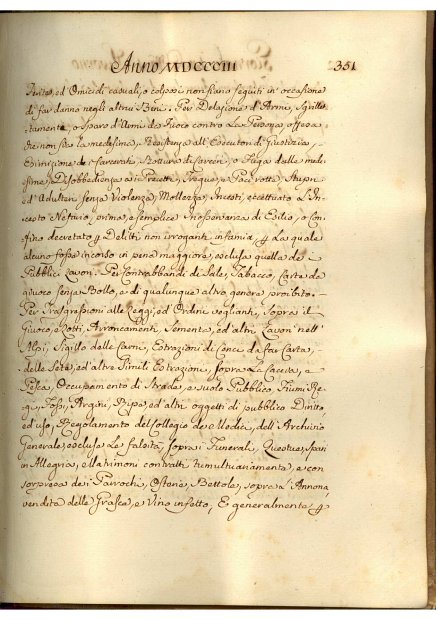 Anno MDCCCIII
351
Ferite, ed Omicidi casuali, o colposi non siano seguiti in occasione
di far danno negli altrui Beni. Per Delazione d'Armi, Sgrillet-
tamento, o Sparo d'Armi da Fuoco contro La Persona offesa,
che non sia la medesima, Resistenza all'Esecutori di Giustizia,
Esimizione de' Carcerati, Rottura di Carceri, o Fuga dalle mede-
sime, Disobbedienza a i Precetti, Tregue, e Paci rotte, Stupri,
ed Adulteri senza Violenza, Mollezza, Incesti, eccettuato L'In-
cesto Nefario, prima, e semplice Inosservanza di Esilio, o Con-
fino decretato p Delitti non irroganti infamia, p La quale
alcuno fosse incorso in pena maggiore, esclusa quella de'
Pubblici Lavori. Per Contrabbandi di Sale, Tabacco, Carte da
giuoco senza Bollo, e di qualunque altro genere proibito.
Per Trasgressioni alle Leggi, ed Ordini veglianti, sopra il
Giuoco, e Lotti, Arroncamenti, Sementa, ed altri Lavori nell'
Alpi, Sigillo delle Carni, Estrazioni di Cenci da far Carta,
della Seta, ed altre Simili Estrazioni, sopra La Caccia, e
Pesca, Occupamento di Strade, e suolo Pubblico, Fiumi Re-
gi, Fossi, Argini, Ripe, ed altri oggetti di pubblico Diritto,
ed uso, Regolamento del Collegio de Medici, dell'Archivio
Generale, escluse Le falsità, sopra i Funerali, Questue, Spari
in Allegria, Matrimoni contratti tumultuariamente, e con
sorpresa de' i Parrochi, Osterie, Bettole, sopra L'Annona,
vendita delle Grasce, e Vino infetto, E generalmente p